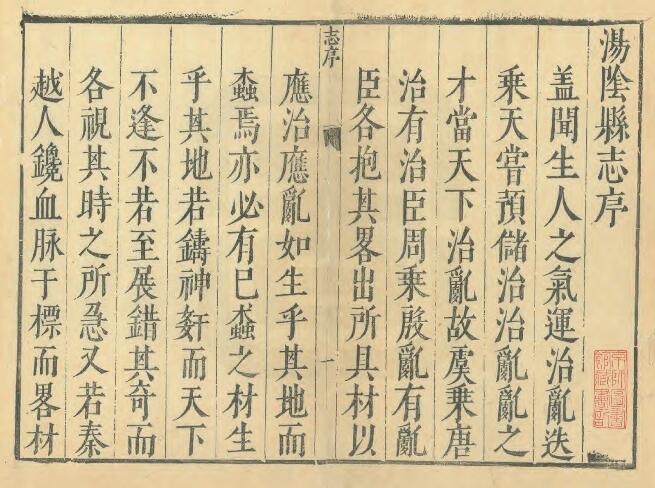 湯陰縣志序
盖聞生人之氣運治亂迭
乗天嘗預儲治治亂亂之
才當天下治亂故虞乗唐
治有治臣周乗殷亂有亂
臣各抱其畧出所具材以
志序
一
應治應亂如生乎其地而
蟊焉亦必有巳蟊之材生
乎其地若鑄神姧而天下
不逢不若至展錯其竒而
各視其時之所急又若秦
越人鑱血脉于標而畧材